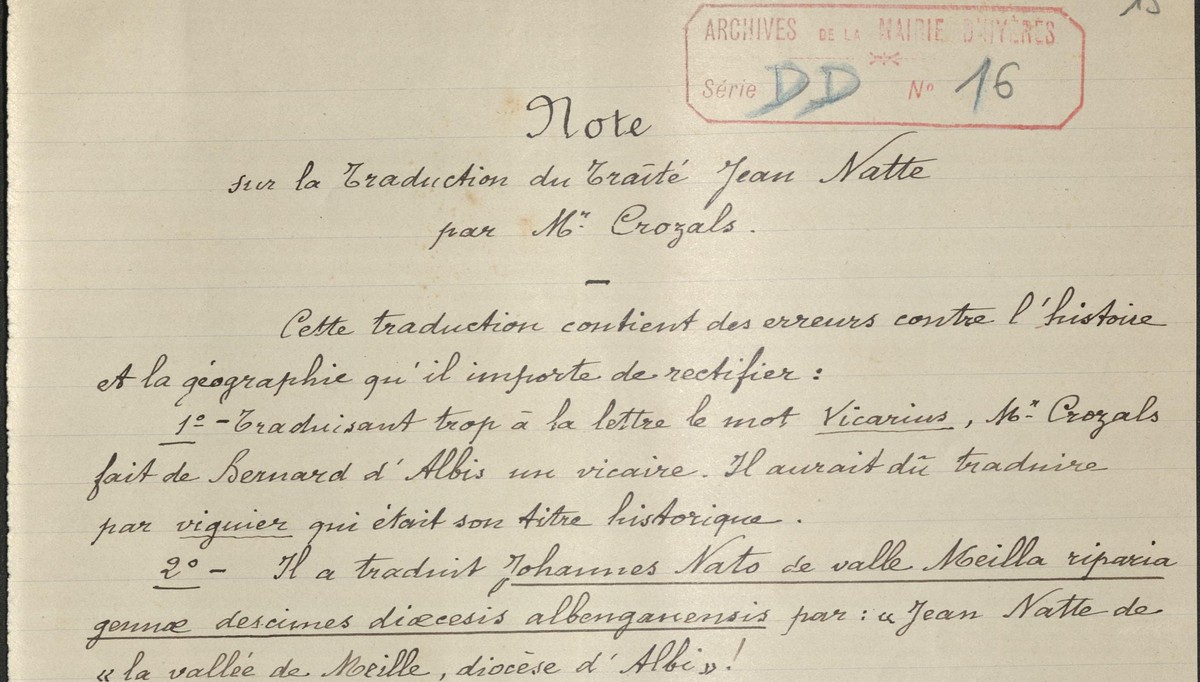 15
ARCHIVES DE LA MAIRIE D'HYÈRES
Série DD N° 16
Note
sur la Traduction du Traité Jean Natte
par Mr. Crozals.
Cette traduction contient des erreurs contre l'histoire
et la géographie qu'il importe de rectifier :
1º - Traduisant trop à la lettre le mot Vicarius, Mr. Crozals
fait de Bernard d'Albis un vicaire. Il aurait dû traduire
par viguier qui était son titre historique.
2º - Il a traduit Johannes Nato de valle Meilla riparia
gennæ descimes diœcesis albenganensis par : « Jean Natte de
« la vallée de Meille, diocèse d'Albi » !